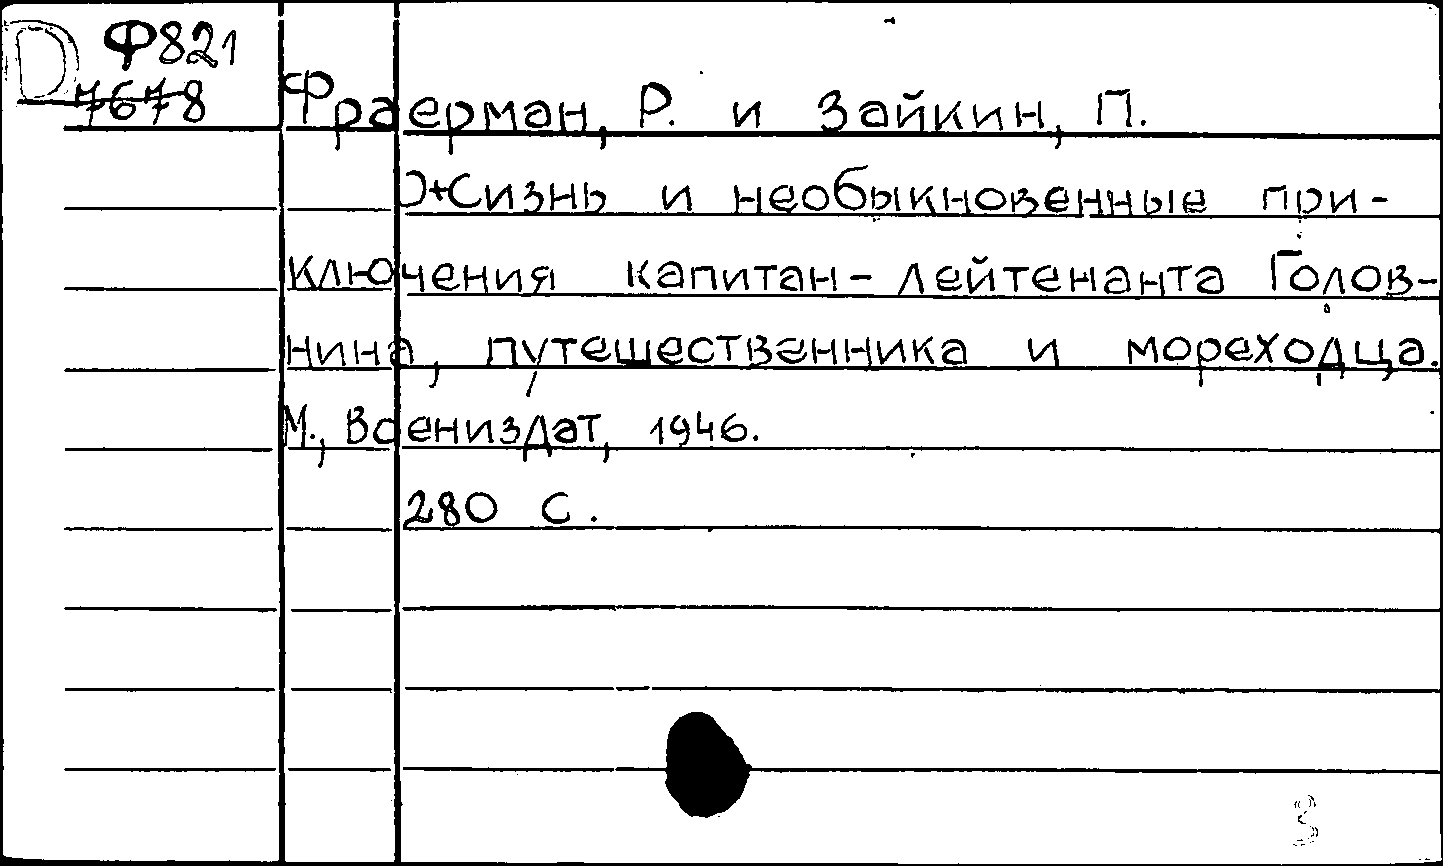 D Ф821
7678
Фраерман, Р. и Зайкин, П.
Жизнь и необыкновенные при-
ключения капитан-лейтенанта Голов-
нина, путешественника и мореходца.
М., Воениздат, 1946.
280 с.
3